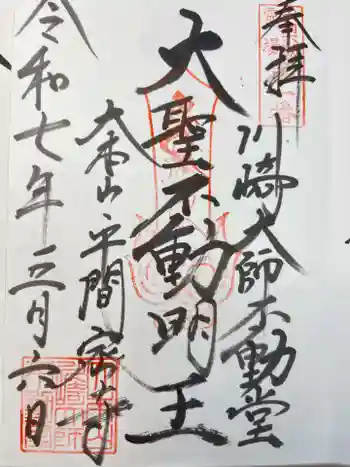 奉拝
川崎大師不動堂
大聖不動明王
大本山平間寺
令和七年三月六日